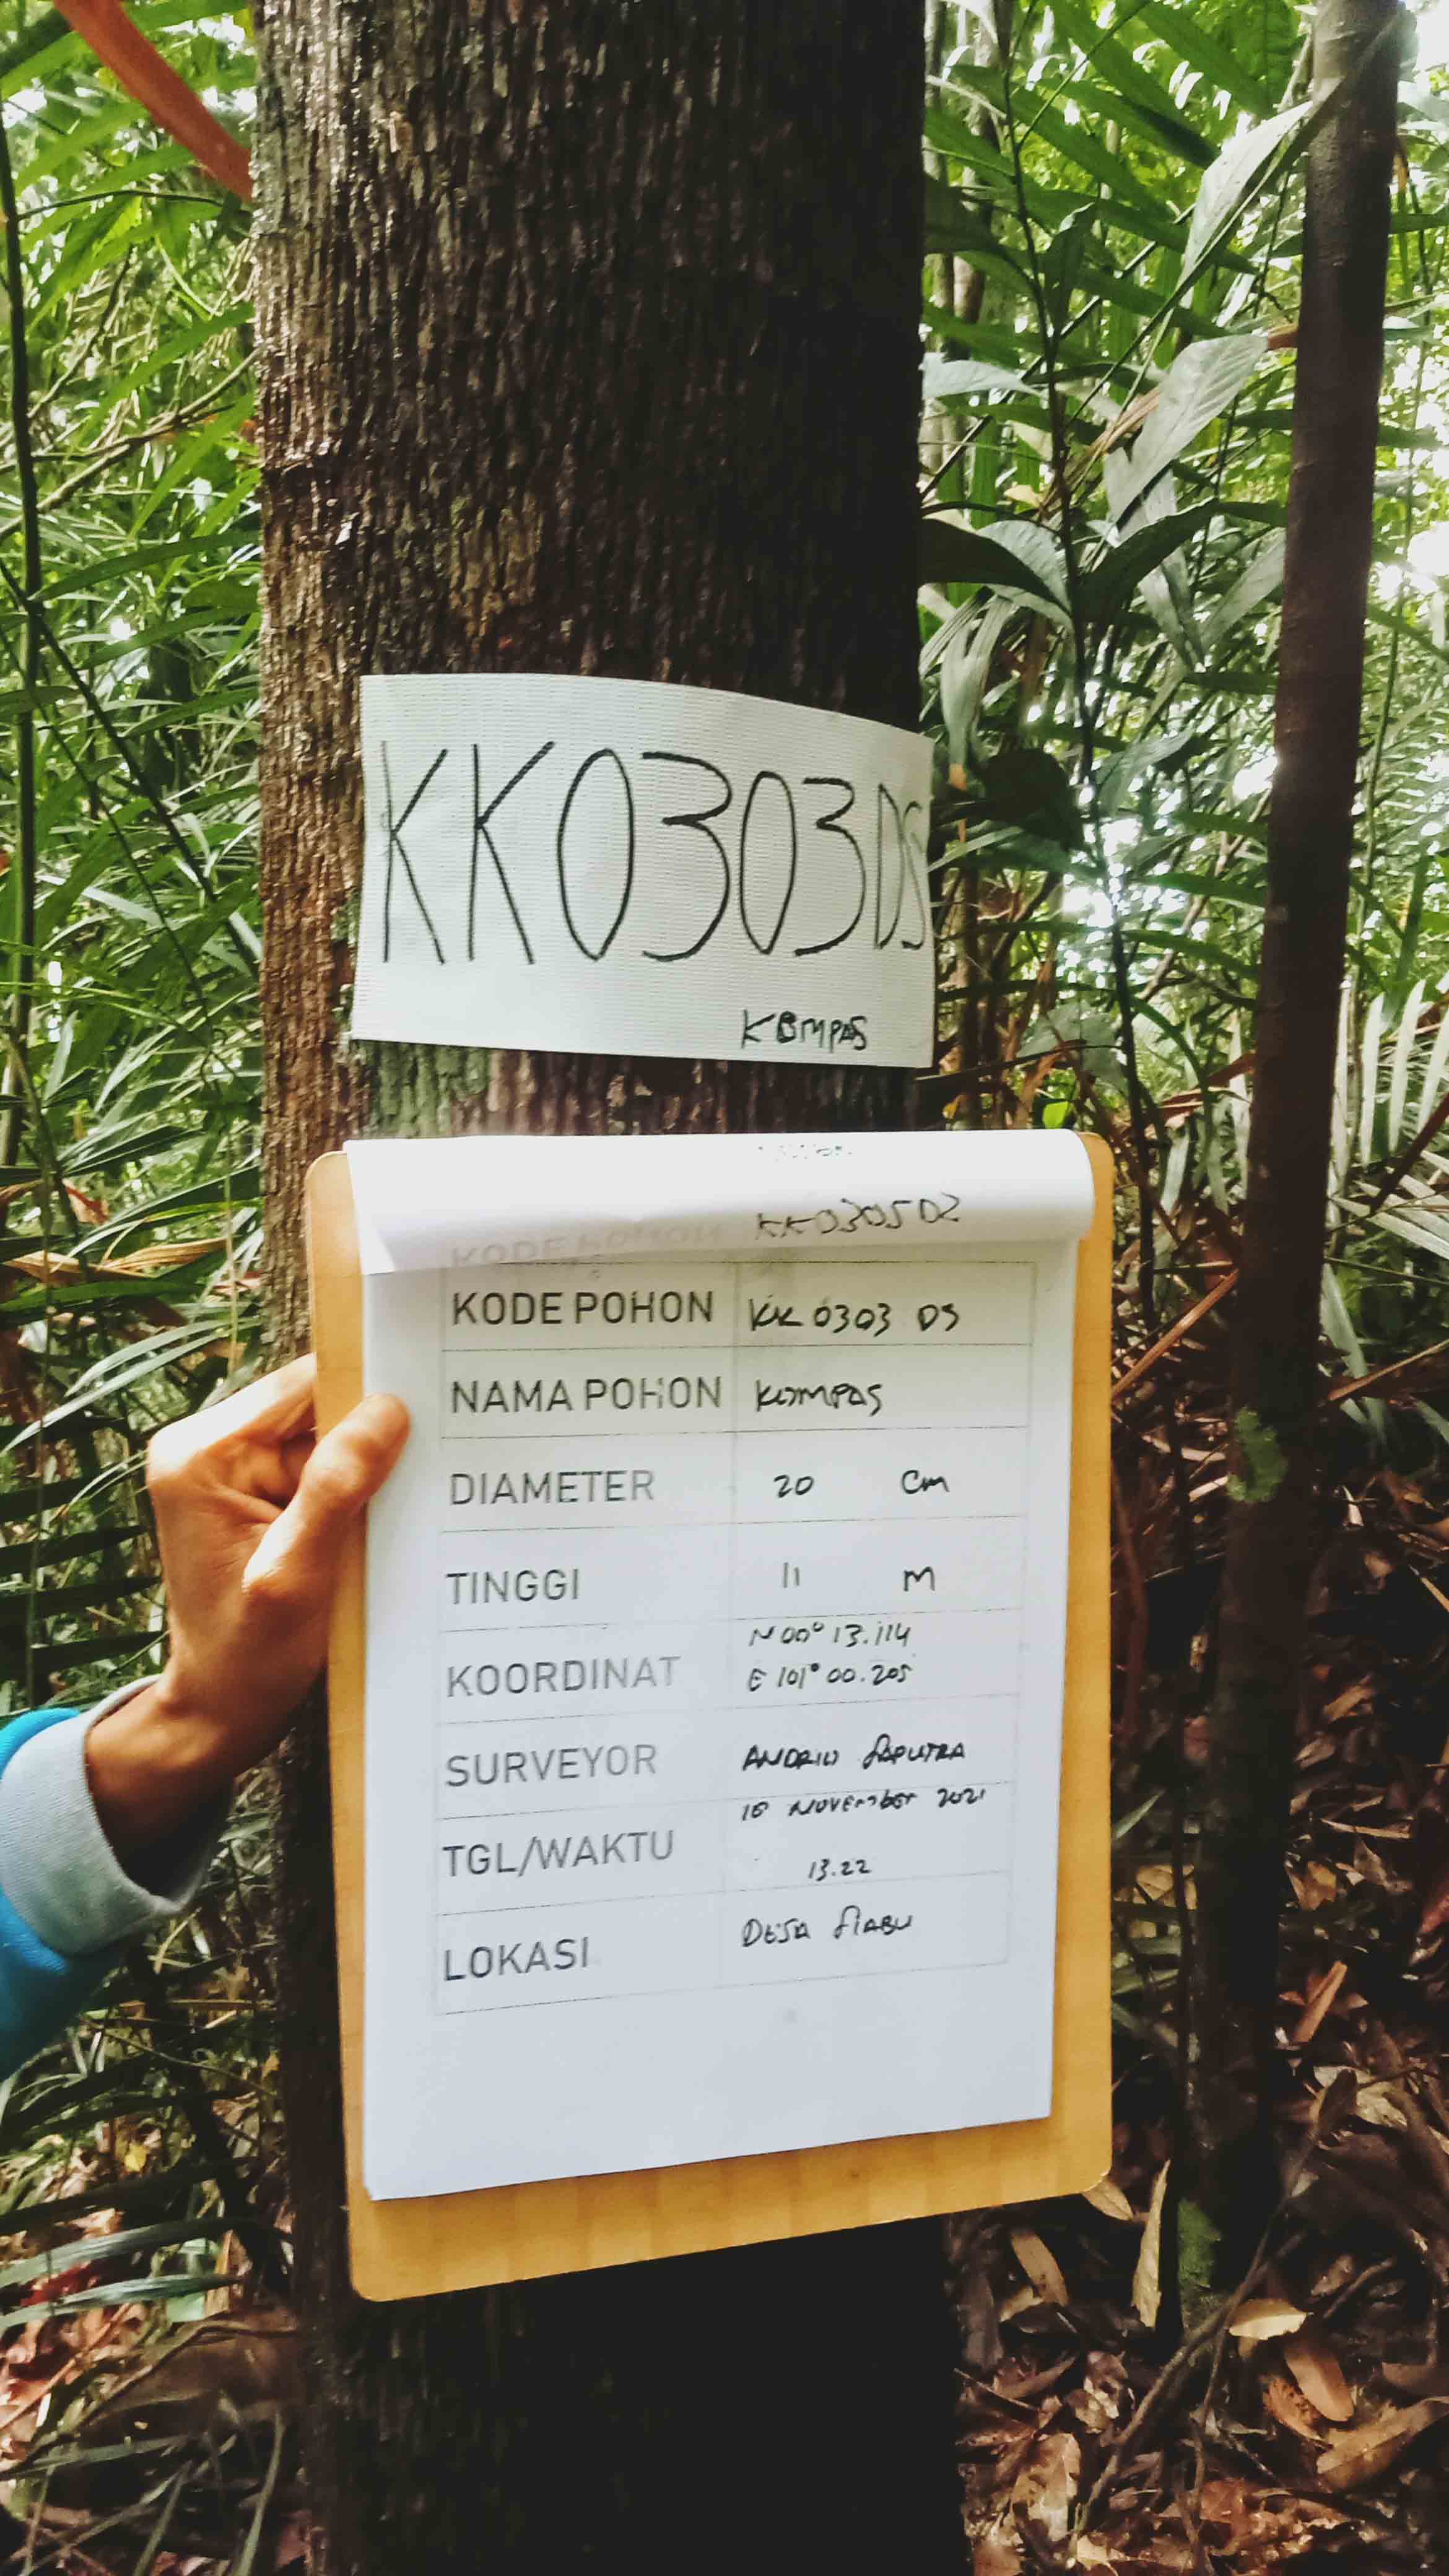 KK0303DS
KOMPAS
KODE POHON KK0305D2
KODE POHON KK 0303 DS
NAMA POHON KOMPAS
DIAMETER 20 Cm
TINGGI 11 M
KOORDINAT N 00° 13.114
E 101° 00.205
SURVEYOR ANDRIO SAPUTRA
TGL/WAKTU 10 NOVEMBER 2021
13.22
LOKASI DESA SIABU